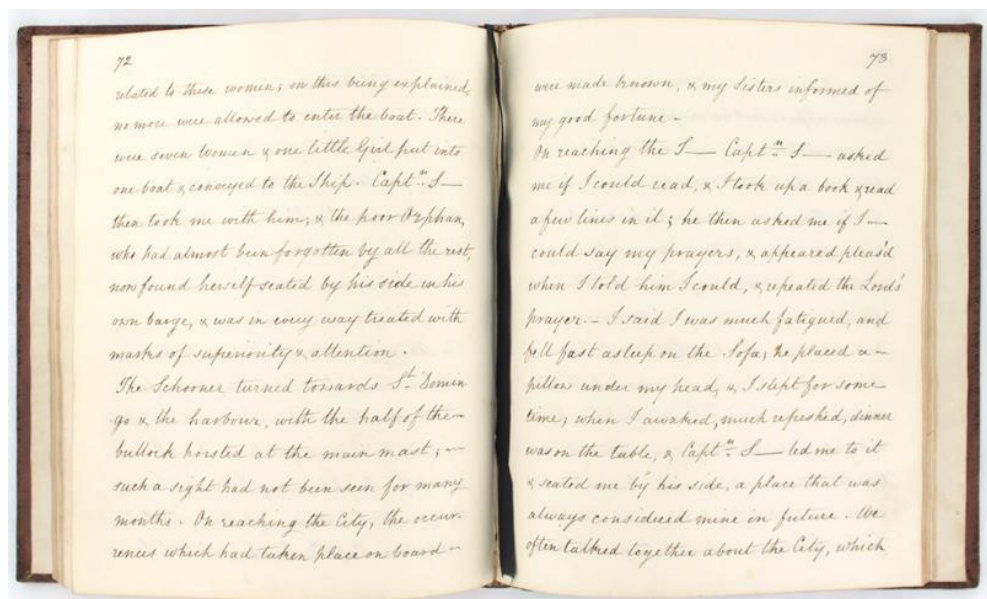 72
related to these women; on this being explained,
no more were allowed to enter the boat. There
were seven Women & one little Girl put into
one boat & conveyed to the Ship. Captn. S—
then took me with him; & the poor Orphan,
who had almost been forgotten by all the rest,
now found herself seated by his side in his
own barge, & was in every way treated with
marks of superiority & attention.
The Schooner turned towards St. Domin
go & the harbour, with the half of the –
bullock hoisted at the main mast; –
such a sight had not been seen for many
months. On reaching the City, the occur-
rences which had taken place on board –
73
were made known, & my Sisters informed of
my good fortune –
On reaching the S— Captn. S— asked
me if I could read, & I took up a book & read
a few lines in it; he then asked me if I –
could say my prayers, & appeared pleas'd
when I told him I could, & repeated the Lords'
prayer. – I said I was much fatigued, and
fell fast asleep on the Sofa; he placed a –
pillow under my head, & I slept for some
time; when I awaked, much refreshed, dinner
was on the table, & Captn. S— led me to it
& seated me by his side, a place that was
always considered mine in future. We
often talked together about the City, which